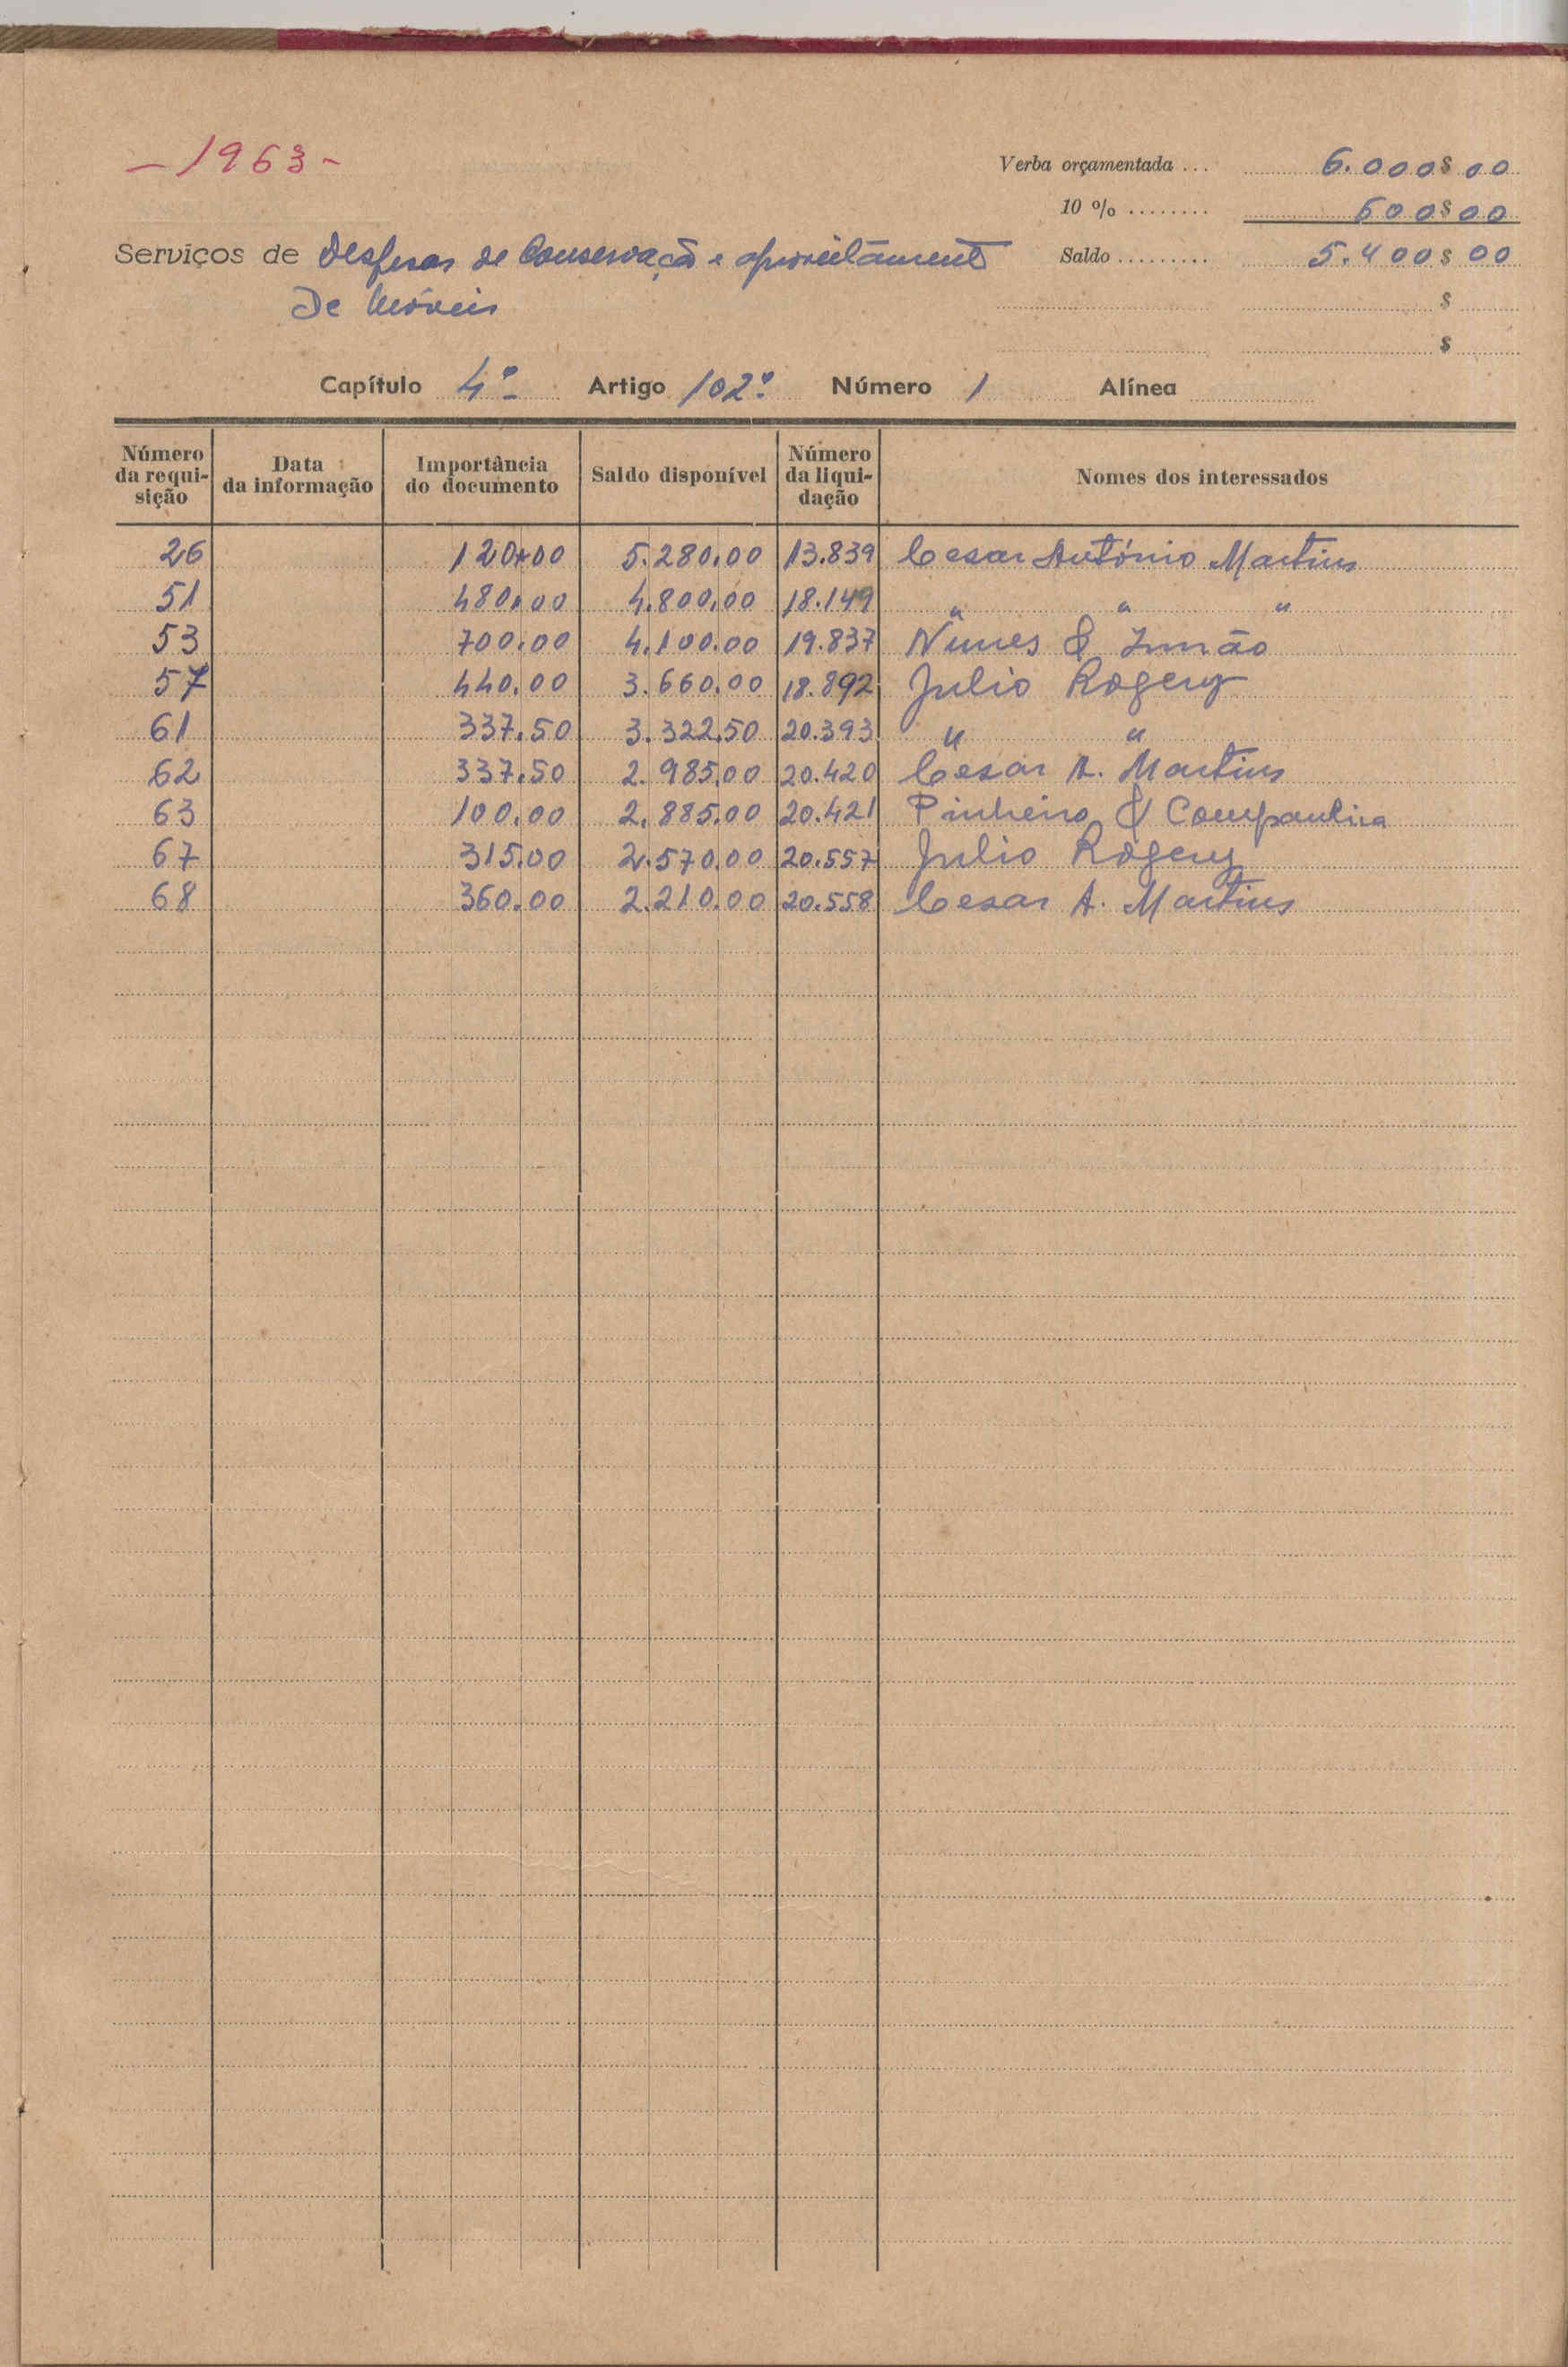 - 1963 -
Verba orçamentada ... 6.000$00
10 % ........ 600$00
Serviços de Despesas de Conservação e aproveitamento Saldo ......... 5.400$00
De Móveis $
$
Capítulo 4º Artigo 102º Número 1 Alínea
Número da requisição Data da informação Importância do documento Saldo disponível Número da liquidação Nomes dos interessados
26 120,00 5.280,00 13.839 Cesar António Martins
51 480,00 4.800,00 18.149 " " "
53 700,00 4.100,00 19.837 Nunes & Irmão
57 440,00 3.660,00 18.892 Julio Rogery
61 337,50 3.322,50 20.393 " "
62 337,50 2.985,00 20.420 Cesar A. Martins
63 100,00 2.885,00 20.421 Pinheiro & Companhia
67 315,00 2.570,00 20.557 Julio Rogery
68 360,00 2.210,00 20.558 Cesar A. Martins